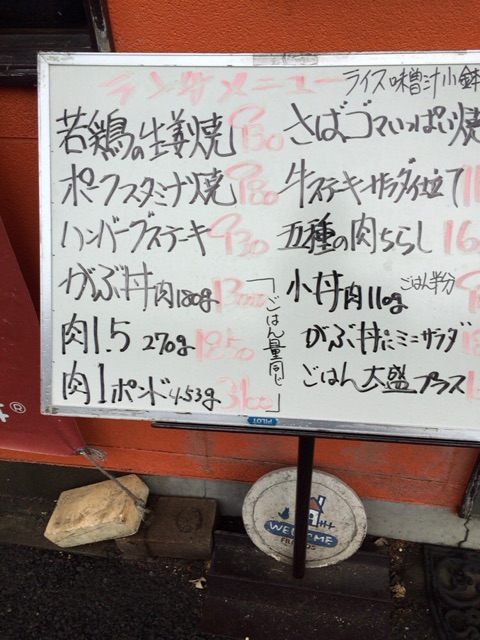 ランチメニュー ライス味噌汁小鉢
若鶏の生姜焼 930
ポークスタミナ焼 980
ハンバーグステーキ 930
がぶ丼肉180g 1300
肉1.5 270g 1850
肉1ポンド453g 3100
「ごはん量同じ」
さばゴマいっぱい焼
牛ステーキサラダ仕立て
五種の肉ちらし 16
小丼肉110g ごはん半分
がぶ丼にミニサラダ
ごはん大盛プラス
PILOT
WELCOME
FRIENDS